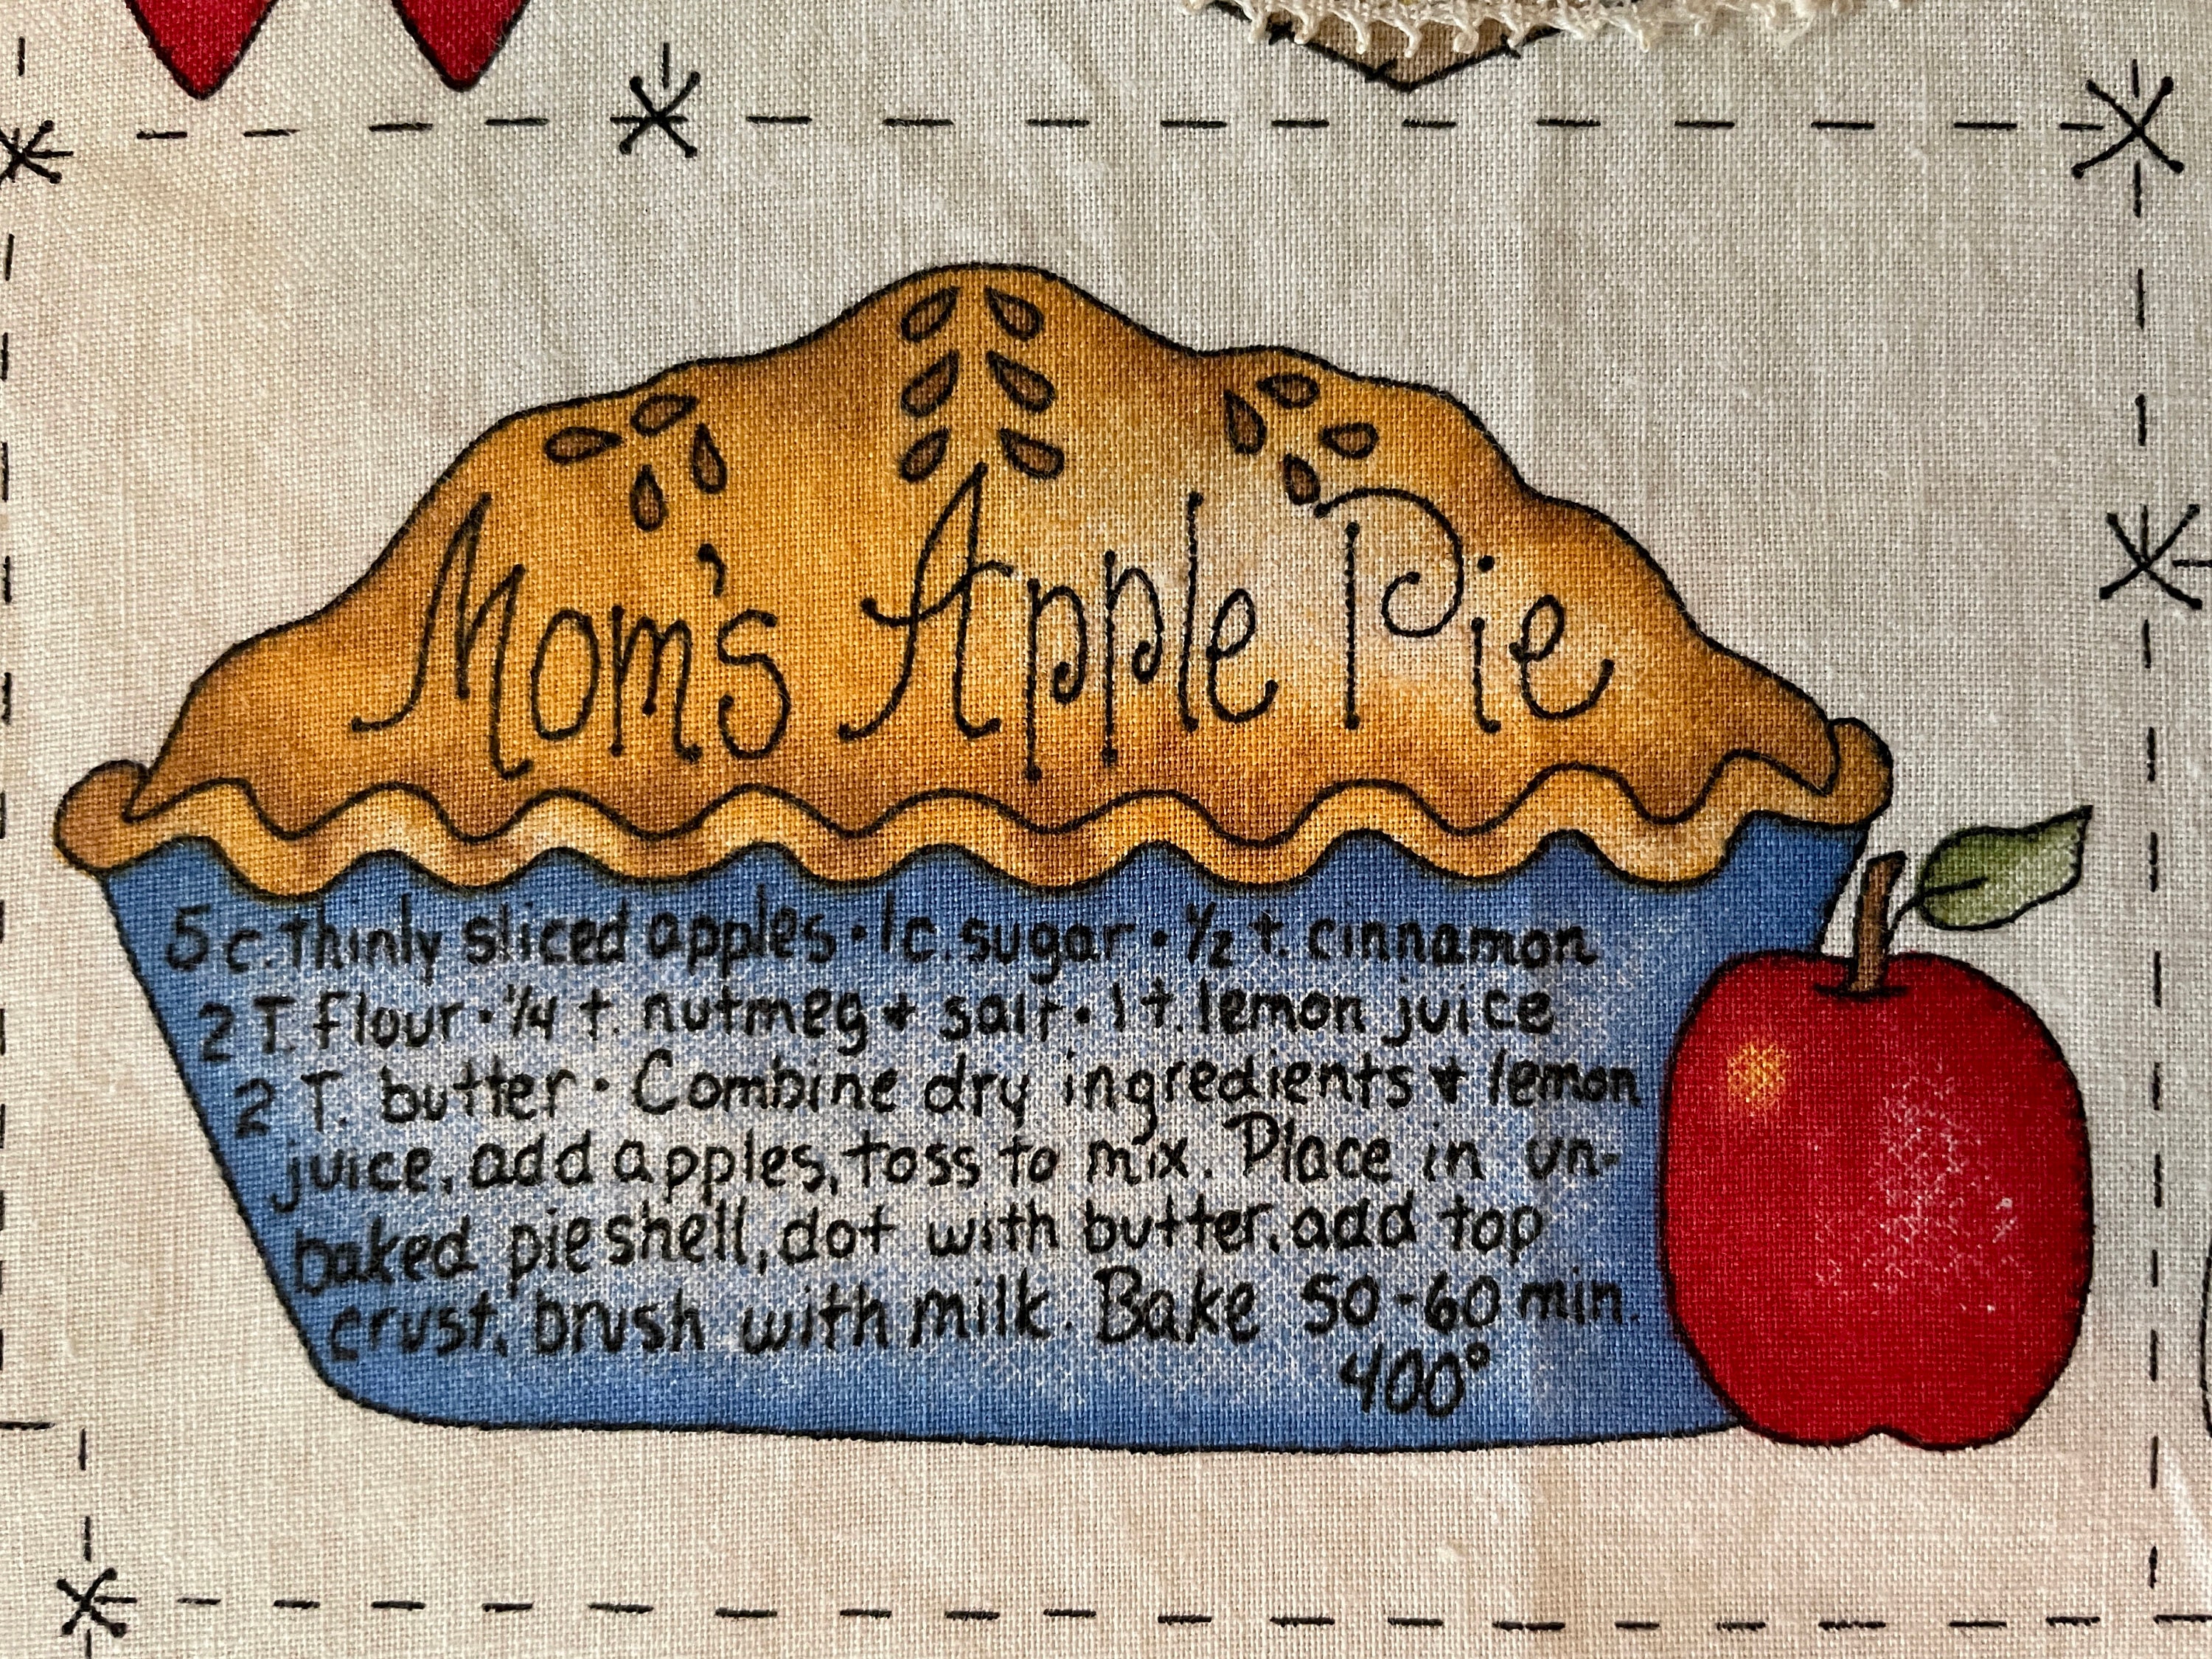 Mom's Apple Pie
5 c. thinly sliced apples • 1 c. sugar • 1/2 t. cinnamon
2 T. flour • 1/4 t. nutmeg + salt • 1 t. lemon juice
2 T. butter • Combine dry ingredients + lemon
juice, add apples, toss to mix. Place in un-
baked pie shell, dot with butter, add top
crust, brush with milk. Bake 50-60 min.
400°